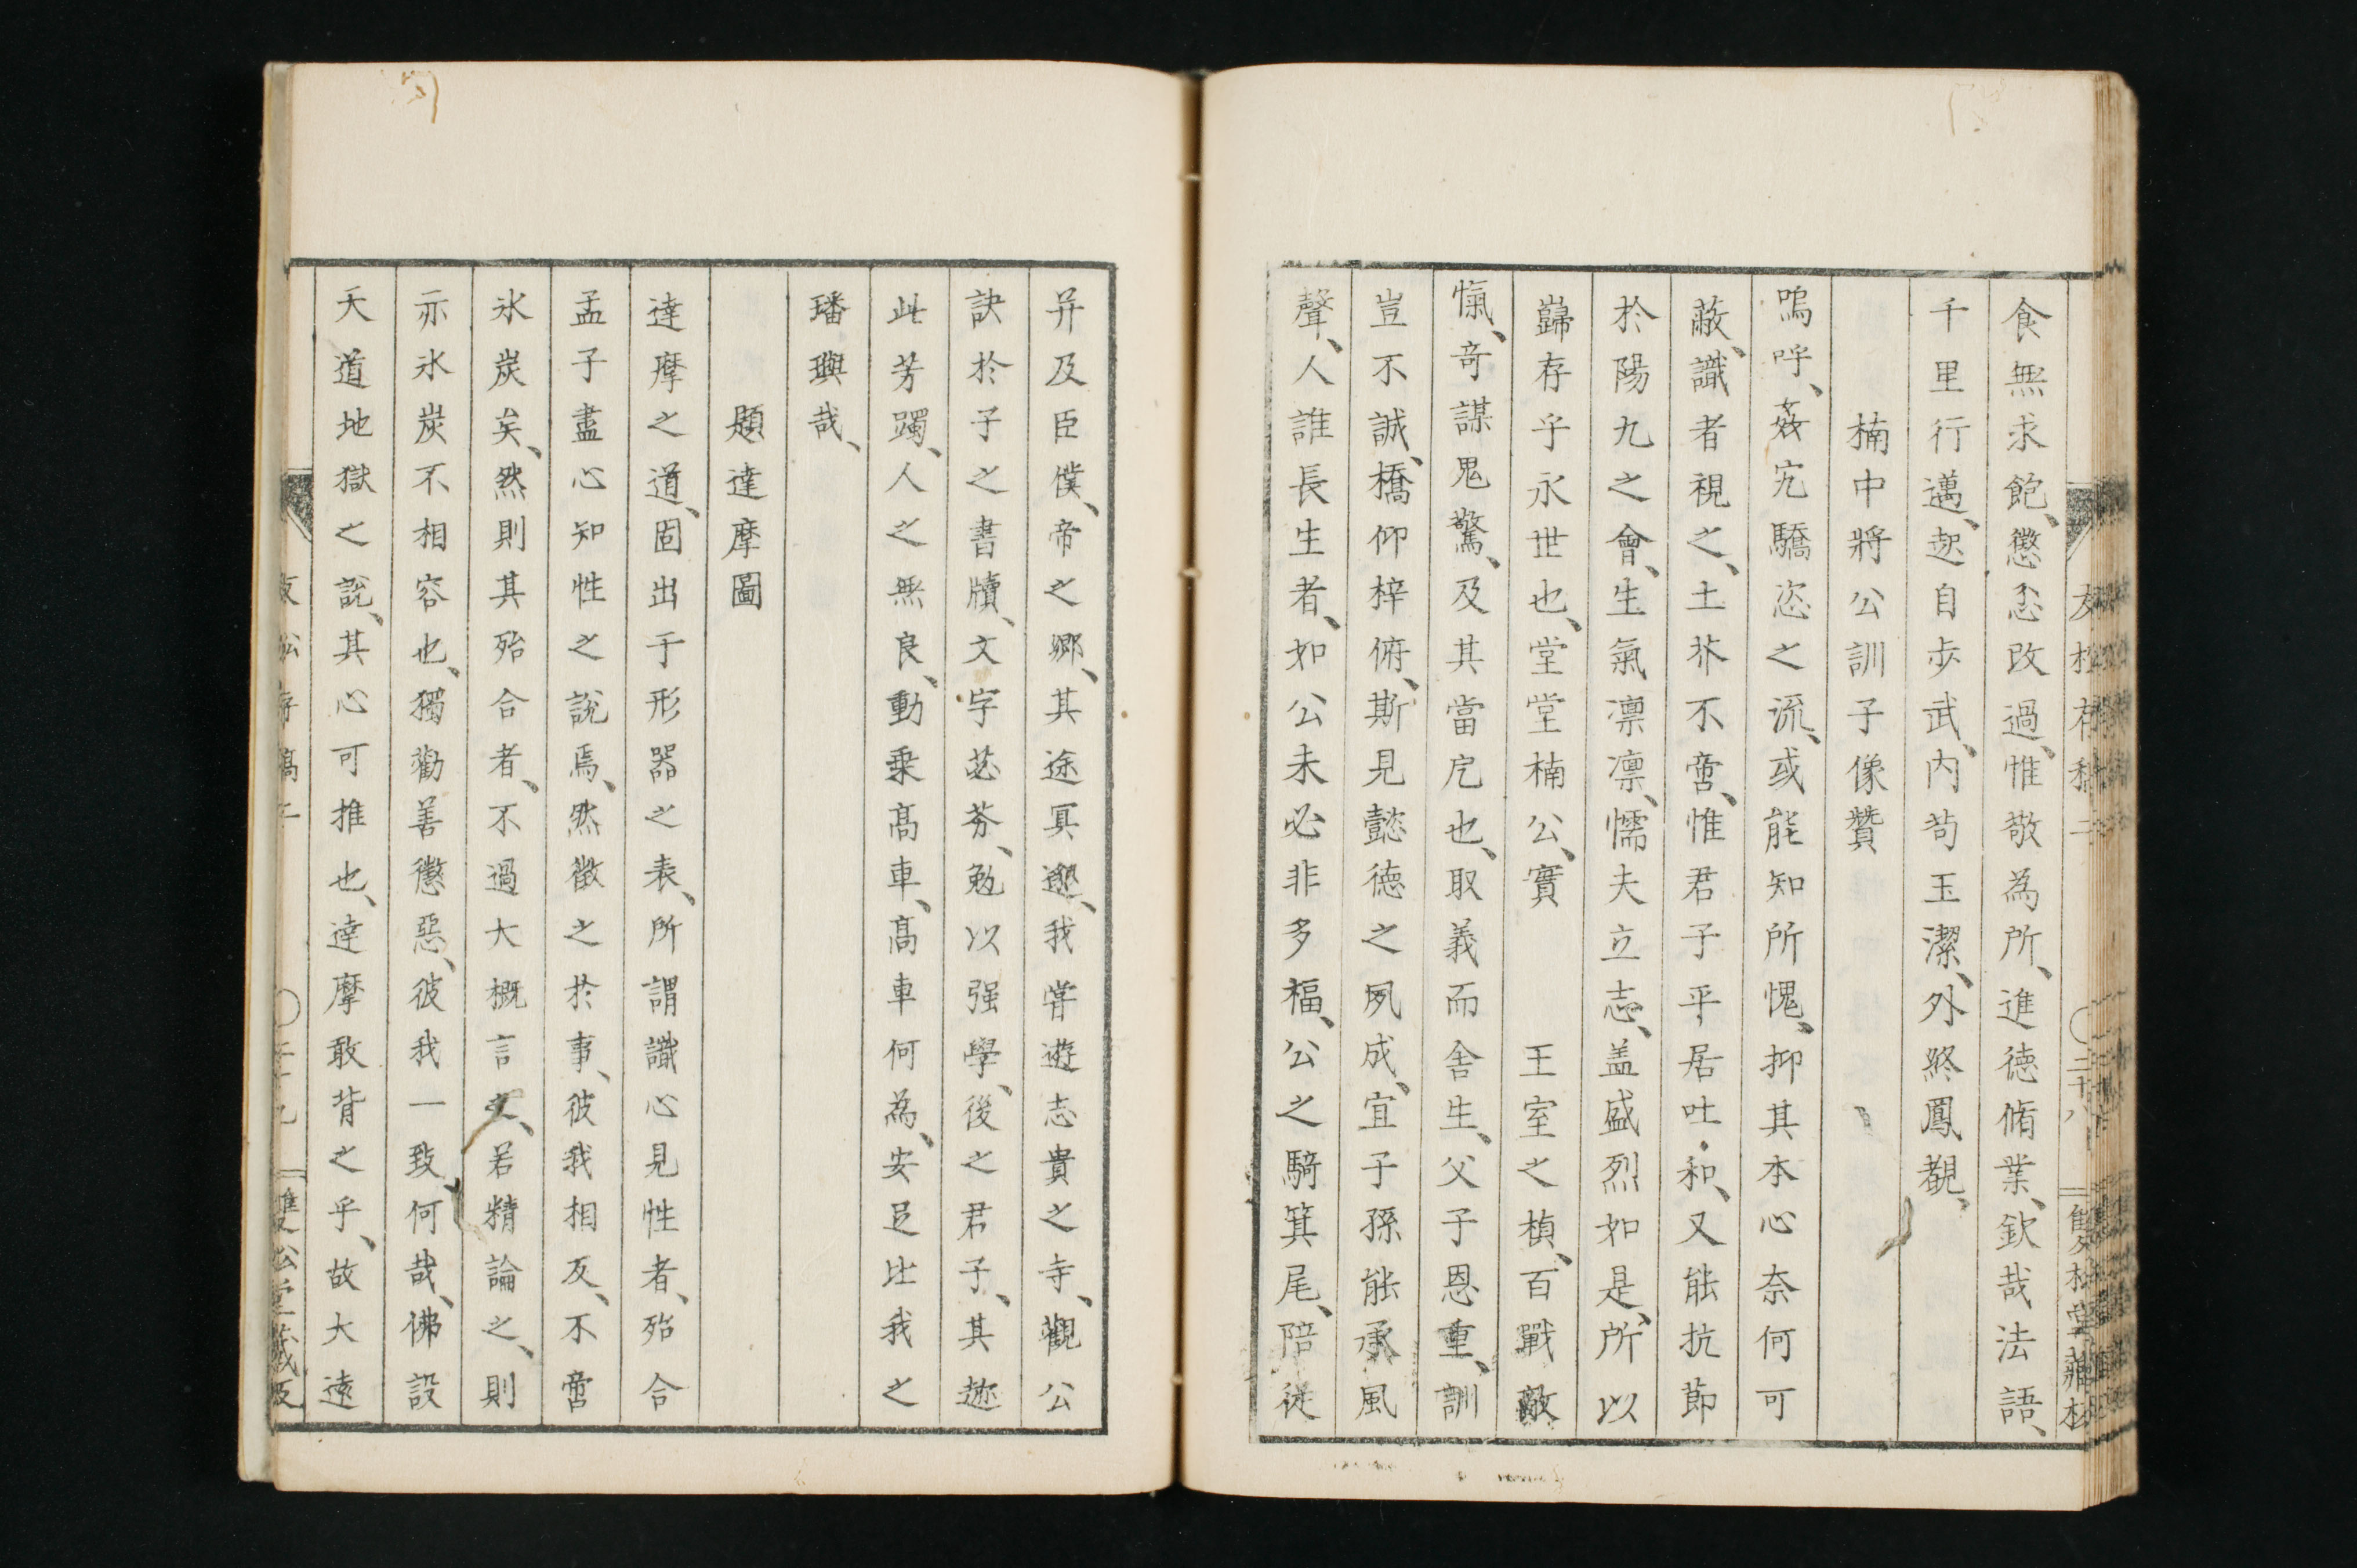 食無求飽、懲忿改過、惟敬為所、進德脩業、欽哉法語、
千里行邁、起自步武、内苟玉潔、外終鳳覩、
楠中將公訓子像贊
嗚呼、姦宄驕恣之流、或能知所愧、抑其本心奈何可
蔽、識者視之、土芥不啻、惟君子乎平居吐和、又能抗節
於陽九之會、生氣凛凛、懦夫立志、盖盛烈如是、所以
巋存乎永世也、堂堂楠公、實　王室之楨、百戰敵
愾、奇謀鬼驚、及其當戹也、取義而舍生、父子恩重、訓
豈不誠、橋仰梓俯、斯見懿德之夙成、宜子孫能承風
聲、人誰長生者、如公未必非多福、公之騎箕尾、陪從
并及臣僕、帝之鄉、其途冥邈、我嘗遊志貴之寺、觀公
訣於子之書牘、文字苾芬、勉以强學、後之君子、其迹
此芳躅、人之無良、動乗髙車、髙車何為、安足比我之
璠璵哉、
題達摩圖
達摩之道、固出于形器之表、所謂識心見性者、殆合
孟子盡心知性之說焉、然徵之於事、彼我相反、不啻
氷炭矣、然則其殆合者、不過大概言之、若精論之、則
亦氷炭不相容也、獨勸善懲惡、彼我一致、何哉、佛設
天道地獄之說、其心可推也、達摩敢背之乎、故大遠
友松存稿二　二十八　雙松堂藏板